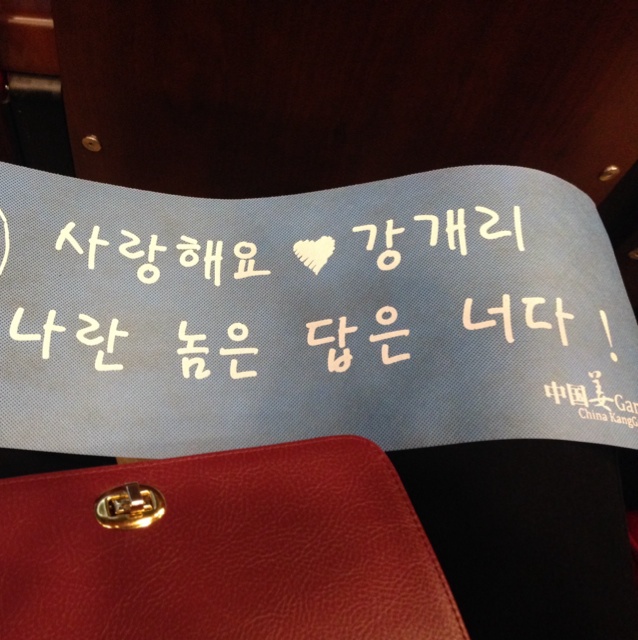 사랑해요 ♥ 강개리
나란 놈은 답은 너다!
中国姜Gar
China KangG